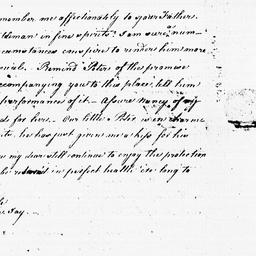 member me affectionately to your Father.
tleman in fine spirits? I am sure num-
cumstances conspire to render him more
uals. Remind Peter of his promise
ccompanying you to this place, tell him
performance of it — Assure Nancy of my
ds for her — Our little Peter is in charm-
its, he has just given me a kiss for his
u my dear still continue to enjoy the protection
be restored in perfect health ere long to
e Jay